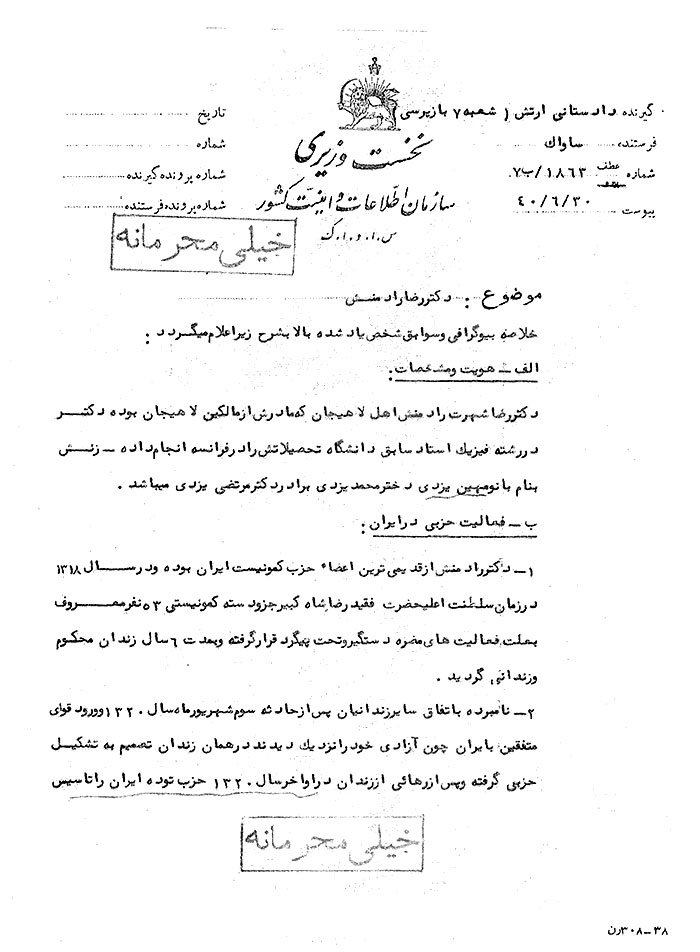 گیرنده دادستانی ارتش (شعبه ۷ بازپرسی)
فرستنده ساواک
شماره عطف ۱۸۶۳/ب۷
پیوست ۴۰/۶/۳۰
نخست وزیری
سازمان اطلاعات و امنیت کشور
س.ا.و.ا.ک
تاریخ
شماره
شماره پرونده گیرنده
شماره پرونده فرستنده
خیلی محرمانه
موضوع : دکتر رضا رادمنش
خلاصه بیوگرافی و سوابق شخص یاد شده بالا بشرح زیر اعلام میگردد :
الف - هویت و مشخصات :
دکتر رضا شهرت رادمنش اهل لاهیجان که مادرش از مالکین لاهیجان بوده دکتر
در رشته فیزیک استاد سابق دانشگاه تحصیلاتش را در فرانسه انجام داده - زنش
بنام بانو مهین یزدی دختر محمد یزدی برادر دکتر مرتضی یزدی میباشد .
ب - فعالیت حزبی در ایران :
۱- دکتر رادمنش از قدیمی ترین اعضاء حزب کمونیست ایران بوده و در سال ۱۳۱۸
در زمان سلطنت اعلیحضرت فقید رضا شاه کبیر جزو دسته کمونیستی ۵۳ نفر معروف
بعلت فعالیت های مضره دستگیر و تحت پیگرد قرار گرفته و بمدت ۶ سال زندان محکوم
و زندانی گردید .
۲- نامبرده باتفاق سایر زندانیان پس از حادثه سوم شهریور ماه سال ۱۳۲۰ و ورود قوای
متفقین بایران چون آزادی خود را نزدیک دیدند در همان زندان تصمیم به تشکیل
حزبی گرفته و پس از رهائی از زندان در اواخر سال ۱۳۲۰ حزب توده ایران را تاسیس
خیلی محرمانه
۳۸-۳۰۸رن